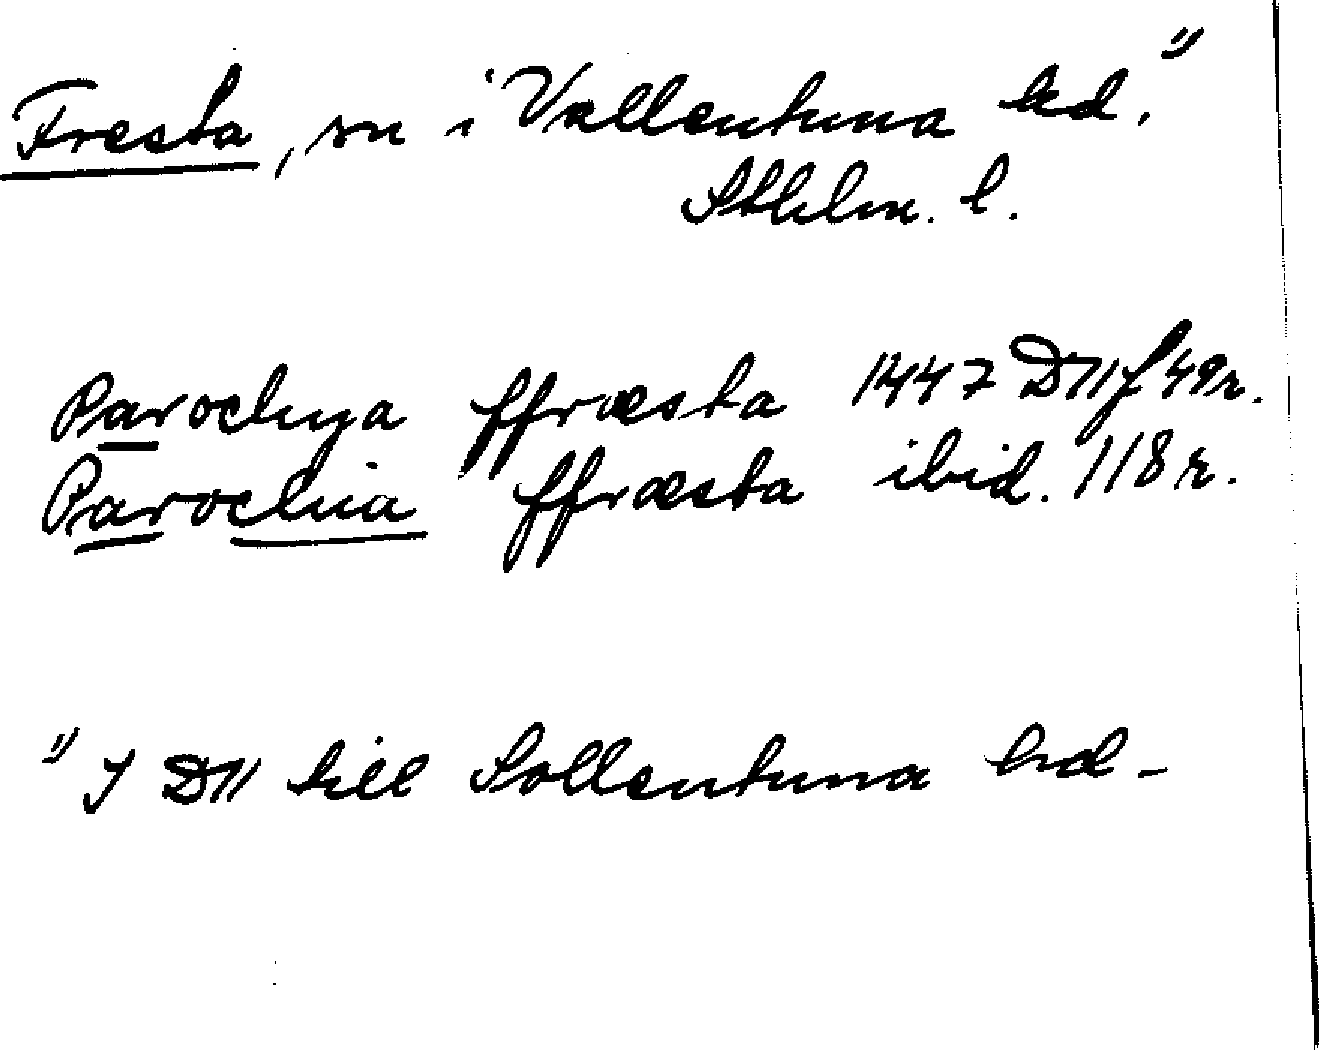 Fresta, sn i Vallentuna hd. 1)
Sthlm. l.
Parochya ffræsta 1447 D11 f 49r.
Parochia ffræsta ibid. 118 r.
1) I D11 till Sollentuna hd.